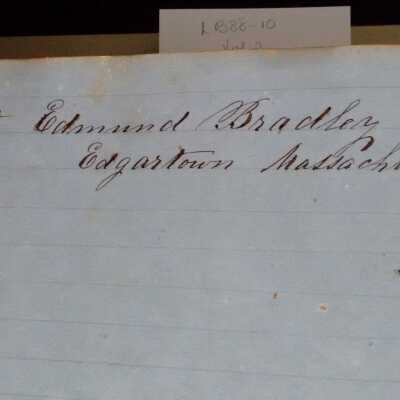 LB88-10
Vol 2
Edmund Bradley
Edgartown Massach